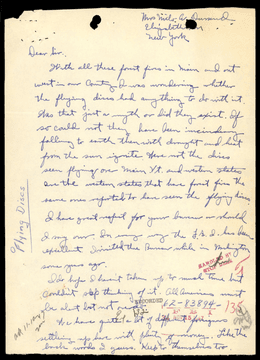 Elizabethtown
New York
Dear Sir.
With all these forest fires in Maine and out
west in our Country I was wondering whether
the flying discs had anything to do with it.
Was that just a myth or did they exist. If
so could not they have been incendiary
following to earth then with drought and heat
from the sun ignite. Were not the discs
seen flying over Main Vt. and western states
are the western states that have forest fire the
same ones reported to have seen the flying discs
I have great respect for your bureau or should
I say our. In every way the F.B.I. has been
excellent I visited the Bureau while in Washington
some years ago.
I do hope I haven't taken up to much time but
Couldn't stop thinking of it. All Americans must
be alert but not
RECORDED
62-83894-
We have quite a lot of different foreigners
setting up here with plenty of money. Like the
Keep to themselves too.
Flying Discs